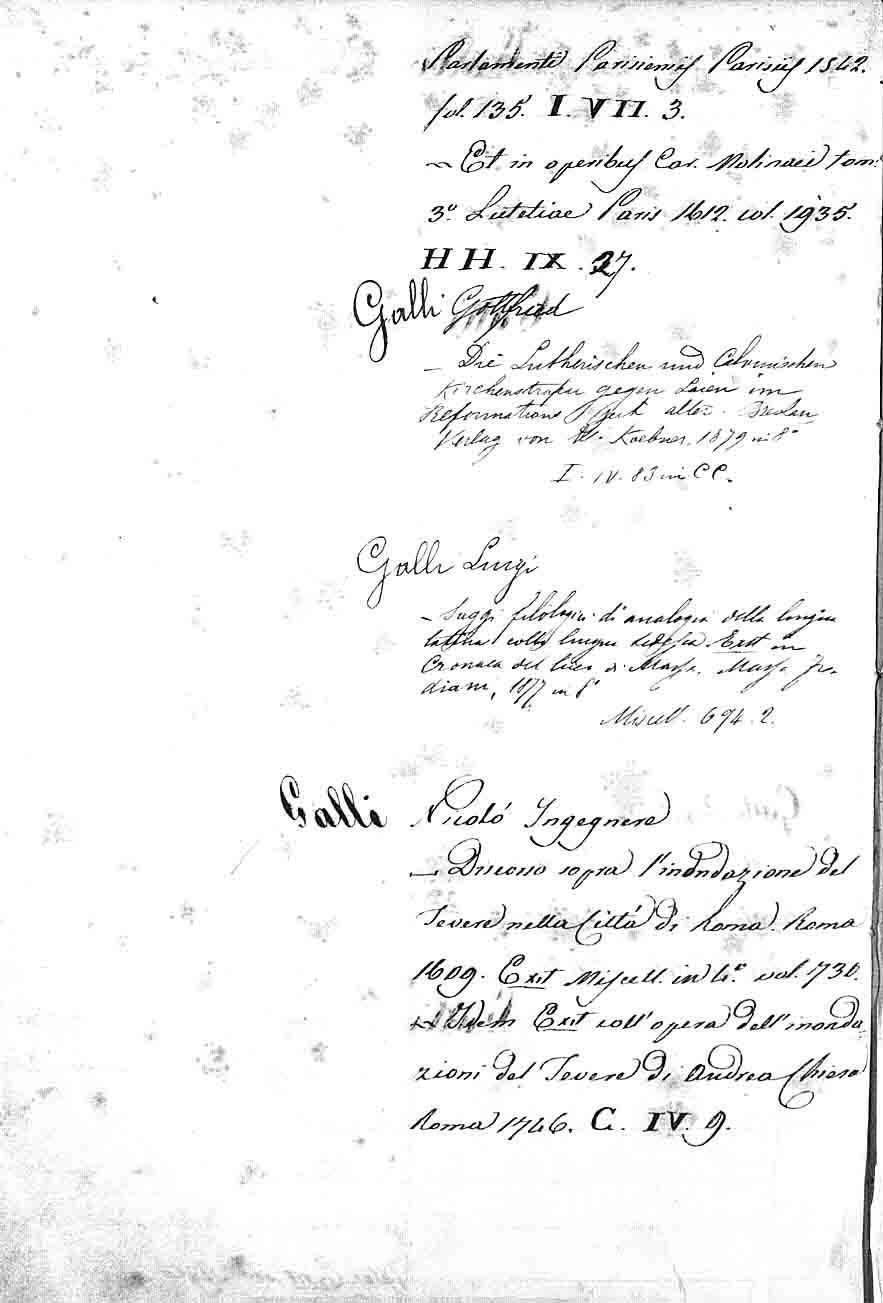 Parlamenti Parisiensis Parisiis 1542.
fol. 135. I. VII. 3.
~ Et in operibus Car. Molinaei tom.
3º Lutetiae Paris 1612. col. 1935.
HH. IX. 27.
Galli Gottfried
– Die Lutherischen und Calvinischen
Kirchenstrafen gegen Laien im
Reformations Zeit alter. Breslau
Verlag von W. Koebner. 1879 in 8º
I. IV. 83 in CC.
Galli Luigi
– Saggi filologici di analogia della lingua
latina colla lingua tedesca Exit in
Cronaca del liceo di Massa. Massa Fre-
diani, 1877 in 8º
Miscell. 694. 2.
Galli Nicoló Ingegnere
– Discorso sopra l'inondazione del
Tevere nella Cittá di Roma. Roma
1609. Exit Miscell. in 4º vol. 730.
~ Idem Exit coll'opera dell'inonda-
zioni del Tevere di Andrea Chiesa
Roma 1746. C. IV. 9.